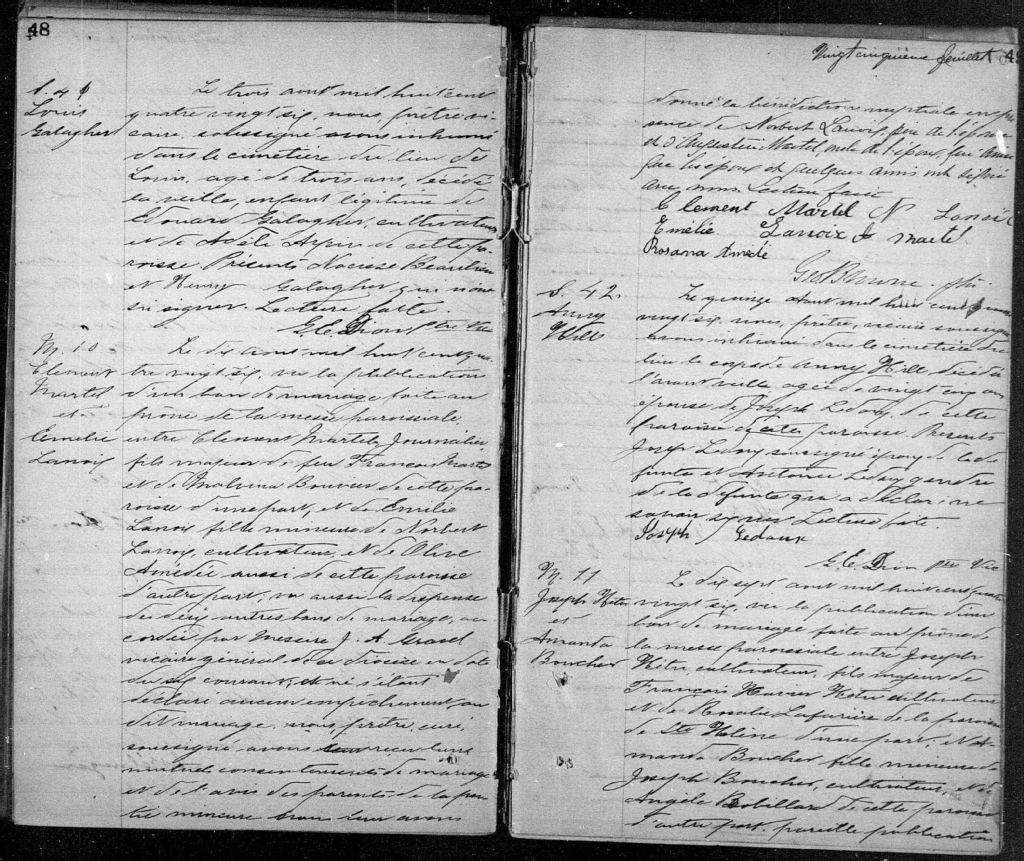 48
S. 41
Louis
Galagher
Le trois aout mil huit cent
quatre vingt six, nous, prêtre vi-
caire, soussigné avons inhumé
dans le cimetière du lieu de
Louis, agé de trois ans, décédé
la veille, enfant légitime de
Edouard Galagher, cultivateur
et de Adèle Arpin de cette pa-
roisse Présents Narcisse Beaulieu
et Henry Galagher qui n'ont
su signer. Lecture faite.
G. E. Dion Ptre Vic
M. 10
Clement
Martel
et
Emelie
Lanoix
Le dix aout mil huit cent qua-
tre vingt six, vu la publication
d'un ban de mariage faite au
prône de la messe paroissiale,
entre Clement Martel, Journalier,
fils majeur de feu François Martel
et de Malvina Bouvier de cette pa-
roisse d'une part, et de Emelie
Lanoix fille mineure de Norbert
Lanoix, cultivateur, et de Olive
Amédée aussi de cette paroisse
d'autre part, vu aussi la dispense
des deux autres bans de mariage, ac-
cordée par Messire J. A. Gravel
vicaire général de ce diocèse en date
du six courant, et ne s'étant
déclaré aucun empêchement au
dit mariage, nous, prêtre, curé,
soussigné, avons reçu leur
mutuel consentement de mariage
et de l'avis des parents de la par-
tie mineure nous leur avons
Vingt cinquième feuillet 49
donné la bénédiction nuptiale en pré
sence de Norbert Lanoix, père de l'épouse
et d'Augustin Martel, oncle de l'époux, qui ainsi
que les époux et quelques amis ont signé
avec nous. Lecture faite
Clement Martel N Lanoix
Emélie Lanoix J Martel
Rosanna Amédé
S. 42.
Anny
Hill
Le quinze Aout mil huit cent quatre
vingt six, nous, prêtre, vicaire soussigné
avons inhumé dans le cimetière du
lieu le corps de Anny Hill décédée
l'avant veille agée de vingt cinq ans
épouse de Joseph Ledoux, de cette
paroisse de cette paroisse. Présents
Joseph Ledoux soussigné époux de la dé
funte et Antoine Ledoux gendre
de la défunte qui a déclaré ne
savoir signer Lecture faite
Joseph Ledoux
G. E. Dion Ptre Vic
M. 11
Joseph Hétu
et
Amanda
Boucher
Le dix sept aout mil huit cent quatre
vingt six, vu la publication d'un
ban de mariage faite au prône de
la messe paroissiale entre Joseph
Hétu, cultivateur, fils majeur de
François Xavier Hétu cultivateur
et de Rosalie de la paroisse
de Ste Hélène d'une part, et A-
manda Boucher fille mineure de
Joseph Boucher, cultivateur, et de
Angèle Robillard de cette paroisse
d'autre part, pareille publication